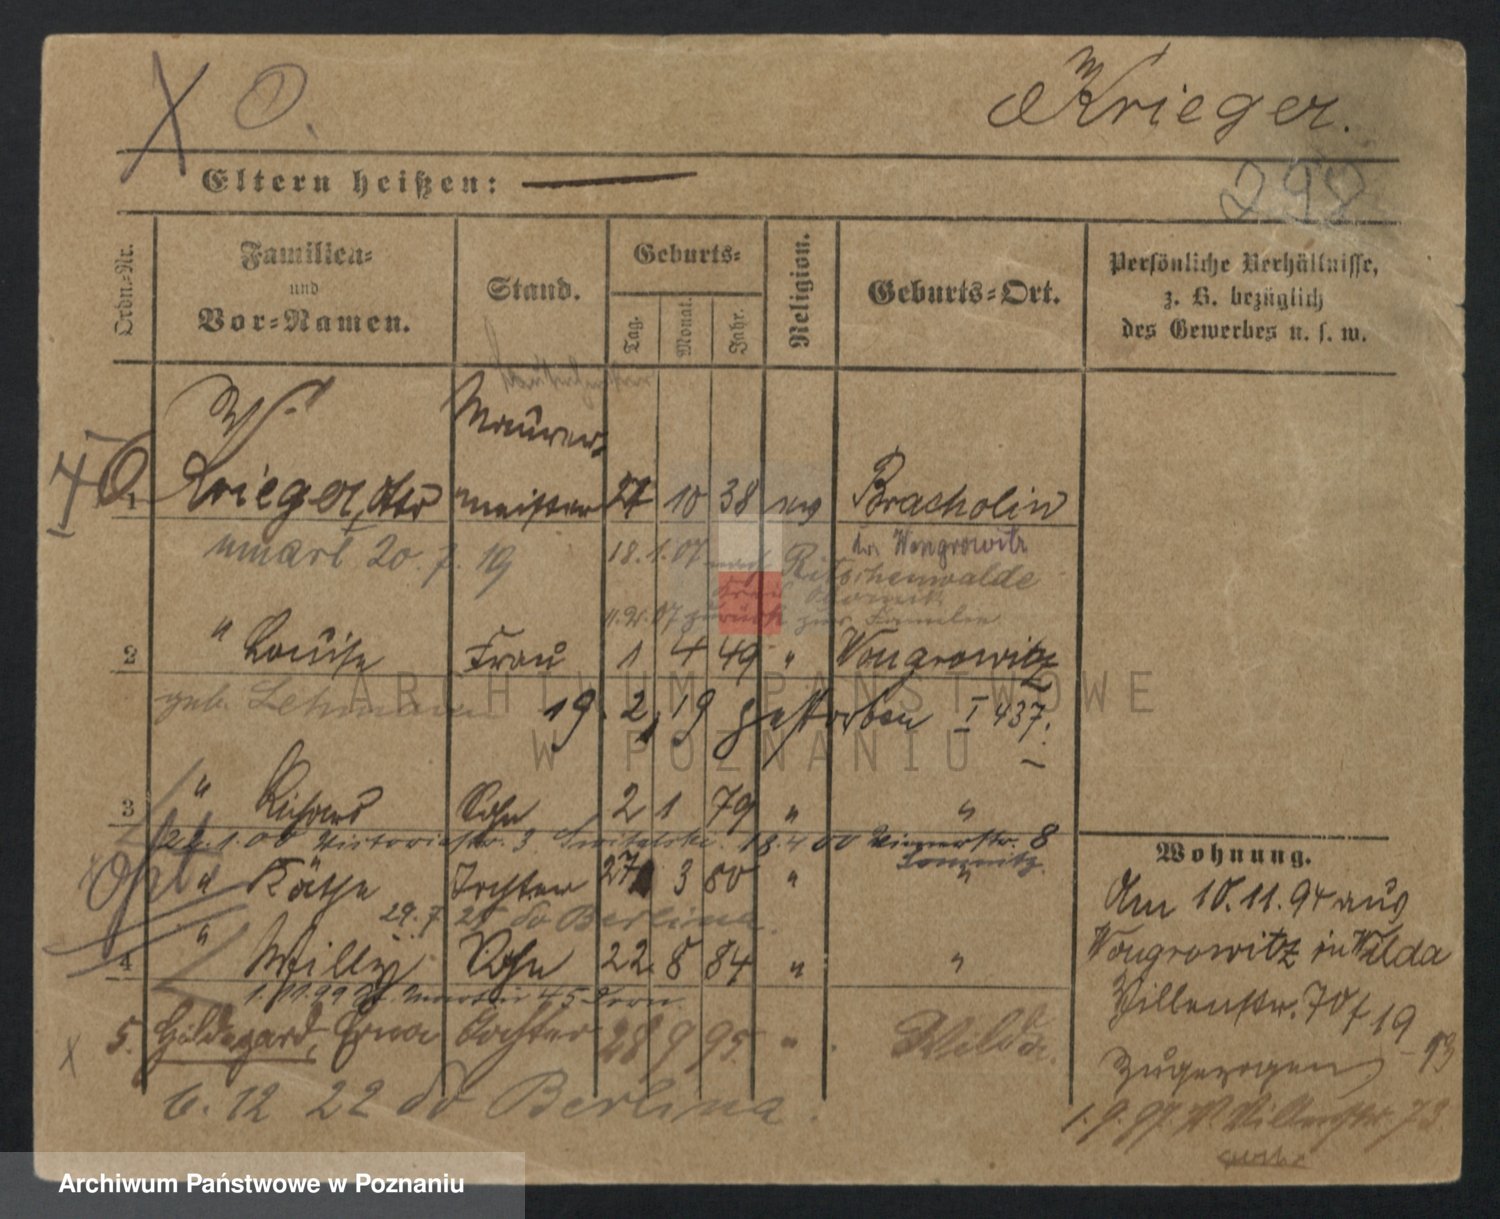 Krieger.
Eltern heißen: —
298
Ordn.-Nr.
Familien-
und
Vor-Namen.
Stand.
Geburts-
Tag.
Monat.
Jahr.
Religion.
Geburts-Ort.
Persönliche Verhältnisse,
z. B. bezüglich
des Gewerbes u. s. w.
Maurer-
1 Krieger, Otto meister 27 10 38 ev Bracholin
umarł 20. 7. 19
Kr. Wongrowitz
18. 1. 07 nach Ritschenwalde
Kreis Obornik
07 zurück zur Familie
2 " Louise Frau 1 4 49 " Wongrowitz
geb. Lehmann 19. 2. 19 gestorben I 437.
3 " Richard Sohn 2 1 79 " "
22. 1. 00 Victoriastr. 3 18. 4 00 Wienerstr. 8
" Käthe Tochter 27 3 80 " "
29. 7 25 do Berlina.
4 " Willy Sohn 22. 8 84 " "
1. 11. 99 St. Martin 45
5. Hildegard, Erna Tochter 28 9 95. " Wilda.
6. 12 22 do Berlina.
Wohnung.
Am 10. 11. 94 aus
Wongrowitz in Wilda
Villenstr. 70
zugezogen
1. 9. 97. W. Villenstr. 73
ARCHIWUM PAŃSTWOWE
W POZNANIU
Archiwum Państwowe w Poznaniu